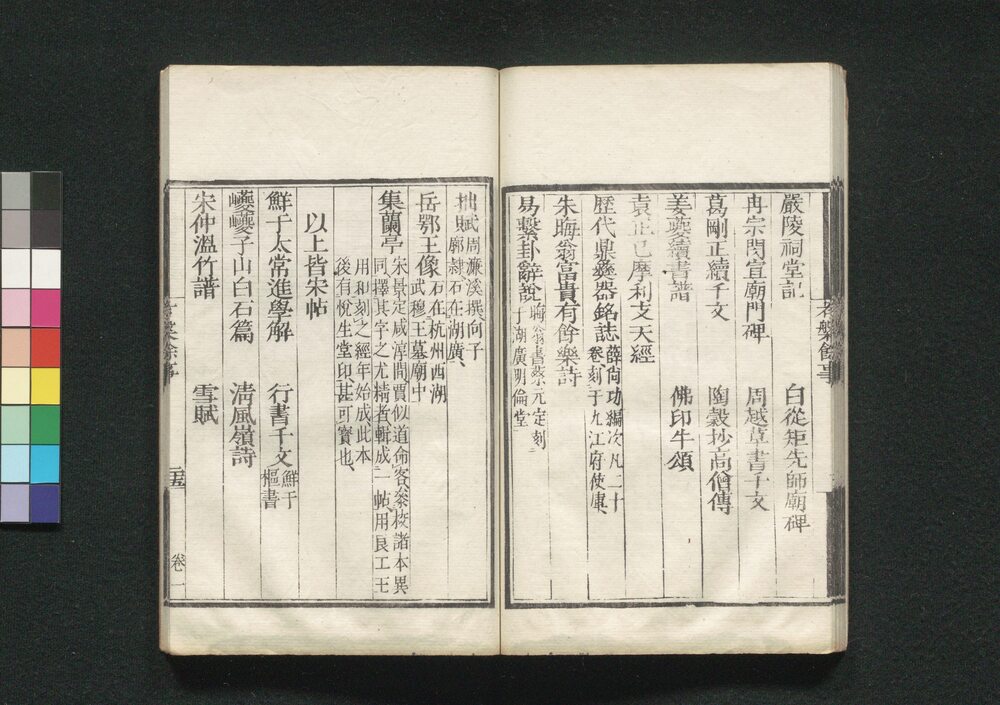 嚴陵祠堂記　白從矩先師廟碑
冉宗閔宣廟門碑　周越草書千文
葛剛正續千文　陶穀抄高僧傳
姜夔續書譜　佛印牛頌
袁正己摩利支天經
歷代鼎彝器銘誌 薛尚功編次凡二十
卷刻于九江府使庫、
朱晦翁富貴有餘樂詩
易繫卦辭說 晦翁書蔡元定刻
于湖廣明倫堂
拙賦 周濂溪撰向子
廓隸石在湖廣、
岳鄂王像 石在杭州西湖
武穆王墓廟中
集蘭亭 宋景定咸淳間賈似道命客叅校諸本異
同、擇其字之尤精者輯成一帖、用良工王
用和刻之經年始成此本
後有悅生堂印甚可寶也、
以上皆宋帖
鮮于太常進學解　行書千文 鮮于
樞書
夔夔子山白石篇　清風嶺詩
宋仲溫竹譜　雪賦
考槃餘事
卷一